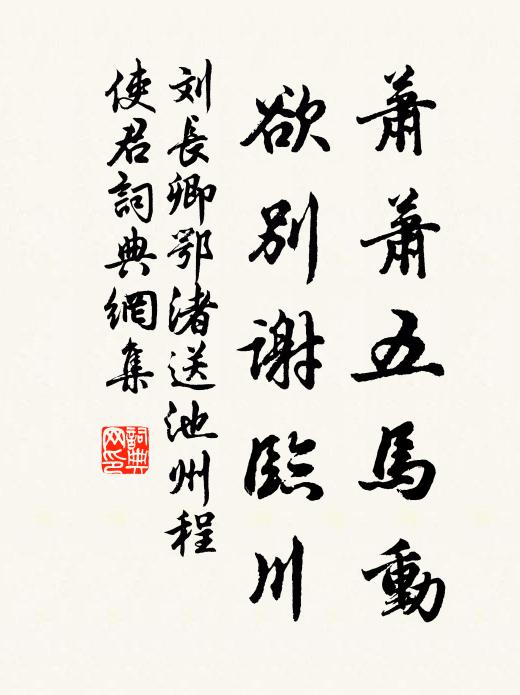 蕭蕭五馬動
欲別謝臨川
刘長卿鄂渚送池州程
使君詞典網集
詞典网印